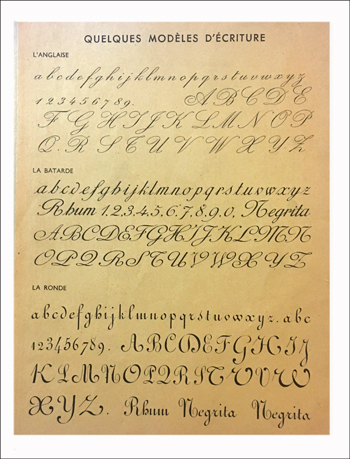 QUELQUES MODÈLES D'ÉCRITURE
L'ANGLAISE
abcdefghijklmnopqrstuvwxyz
123456789. ABCDE
FGHIJKLMNOP
QRSTUVWXYZ
LA BATARDE
abcdefghijklmnopqrstuvwxyz
Rhum 1.2.3.4.5.6.7.8.9.0. Negrita
ABCDEFGHIJKLMN
OPQRSTUVWXYZ
LA RONDE
abcdefghijklmnopqrstuvwxyz. abc
123456789. ABCDEFGHIJ
KLMNOPQRSTUVW
XYZ. Rhum Negrita Negrita